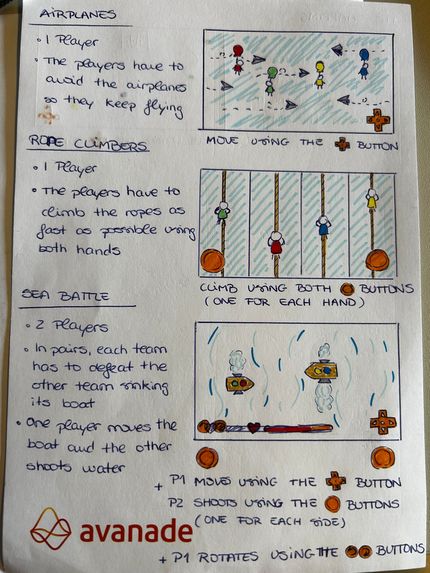 AIRPLANES
• 1 Player
• The players have to
avoid the airplanes
so they keep flying
MOVE USING THE BUTTON
ROPE CLIMBERS
• 1 Player
• The players have to
climb the ropes as
fast as possible using
both hands
CLIMB USING BOTH BUTTONS
(ONE FOR EACH HAND)
SEA BATTLE
• 2 Players
• In pairs, each team
has to defeat the
other team sinking
its boat
• One player moves the
boat and the other
shoots water
+ P1 MOVES USING THE BUTTON
P2 SHOOTS USING THE BUTTONS
(ONE FOR EACH SIDE)
avanade
+ P1 ROTATES USING THE BUTTONS